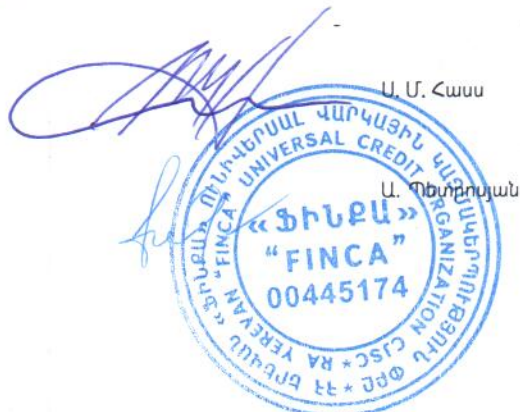 -
Ս. Մ. Հասս
Ա. Պետրոսյան
«ՖԻՆՔԱ» ՈՒՆԻՎԵՐՍԱԼ ՎԱՐԿԱՅԻՆ ԿԱԶՄԱԿԵՐՊՈՒԹՅՈՒՆ ՓԲԸ * ՀՀ ԵՐԵՎԱՆ
"FINCA" UNIVERSAL CREDIT ORGANIZATION CJSC * RA YEREVAN
«ՖԻՆՔԱ»
"FINCA"
00445174